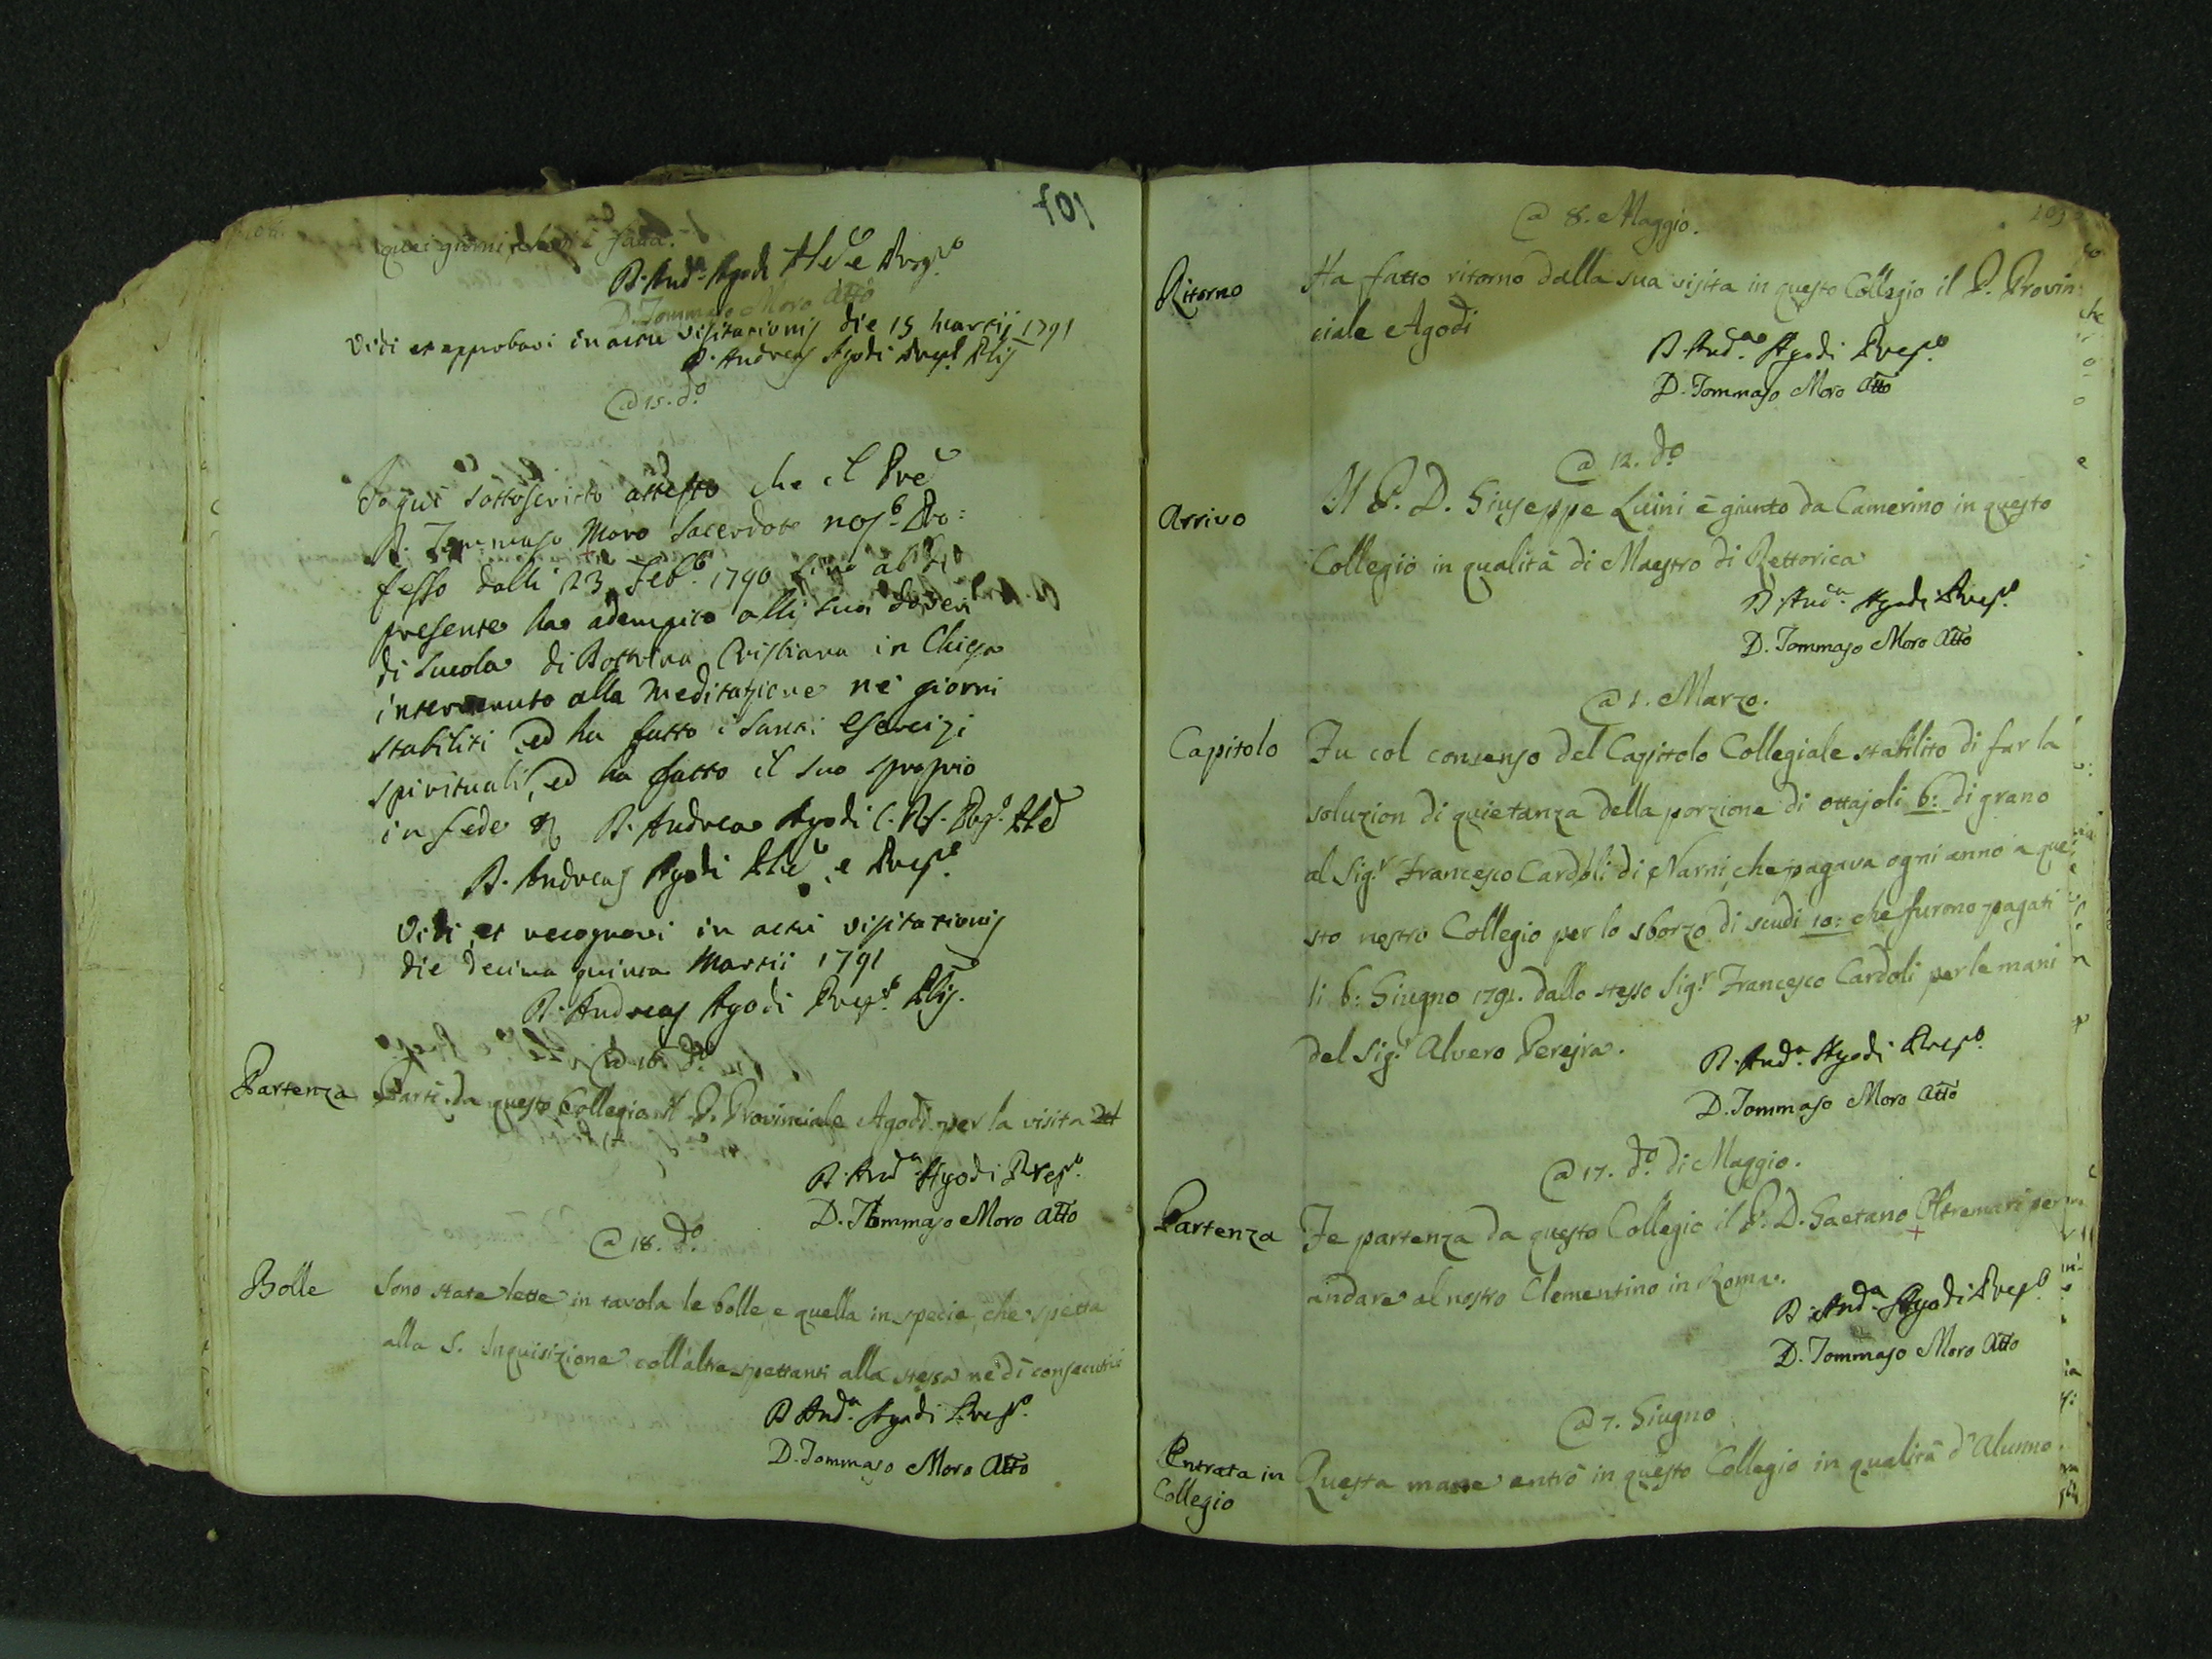 101
quei giorni
D. And.ª Agodi Ple e Prep.to
D. Tommaso Moro Atto
Vidi et approbavi in actu visitationis die 15 Martij 1791
D. Andreas Agodi Prep.t Plis
@ 15. do
Io qui sottoscritto attesto che il Pre
D. Tommaso Moro Sacerdote nos.o Pro:
fesso dalli 23 Feb.o 1790 sino al dì
presente ha adempito alli suoi doveri
di Scuola di Dottrina Cristiana in Chiesa
intervenuto alla Meditazione nè giorni
stabiliti, ed ha fatto i Santi Esercizj
spirituali, ed ha fatto il suo sproprio
in fede D. Andrea Agodi C.R.S. Prep.o Ple
D. Andreas Agodi Ple, e Prep.o
Vidi, et recognovi in actu visitationis
die decima quinta Martii 1791
D. Andreas Agodi Prep.t Plis.
@ 16. do
Partenza Partì da questo Collegio il P. Provinciale Agodi per la visita
D. And.ª Agodi Prep.o
D. Tommaso Moro Atto
@ 18. do
Bolle Sono state lette in tavola le bolle, e quella in specie, che spetta
alla S. Inquisizione coll'altre spettanti alla stessa nè dì consecutivi
D. And.ª Agodi Prep.o
D. Tommaso Moro Atto
@ 8. Maggio.
Ritorno Ha fatto ritorno dalla sua visita in questo Collegio il P. Provin:
ciale Agodi
D. And.ª Agodi Prep.o
D. Tommaso Moro Atto
@ 12. do
Arrivo Il P. D. Giuseppe Luini è giunto da Camerino in questo
Collegio in qualità di Maestro di Rettorica
D. And.ª Agodi Prep.o
D. Tommaso Moro Atto
@ 1. Marzo.
Capitolo Fu col consenso del Capitolo Collegiale stabilito di far la
soluzion di quietanza della porzione di ottajoli 6: di grano
al Sig.r Francesco Cardoli di Narni, che pagava ogni anno a que:
sto nostro Collegio per lo sborzo di scudi 10: che furono pagati
li 6: Giugno 1791. dallo stesso Sig.r Francesco Cardoli per le mani
del Sig.r Alvero Perejra.
D. And.ª Agodi Prep.o
D. Tommaso Moro Atto
@ 17. do di Maggio.
Partenza Fe partenza da questo Collegio il P. D. Gaetano Oltremari per
andare al nostro Clementino in Roma.
D. And.ª Agodi Prep.o
D. Tommaso Moro Atto
@ 7. Giugno
Entrata in Collegio Questa mane entrò in questo Collegio in qualità d'Alunno